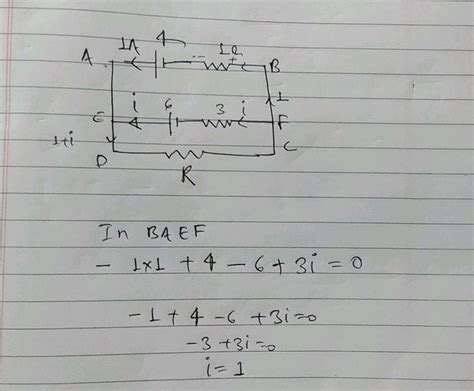 1A 4 1Ω
A - + B
i 6 3 i 1
E F
1+i
D R C
In BAEF
- 1×1 + 4 - 6 + 3i = 0
-1 + 4 - 6 + 3i = 0
-3 + 3i = 0
i = 1